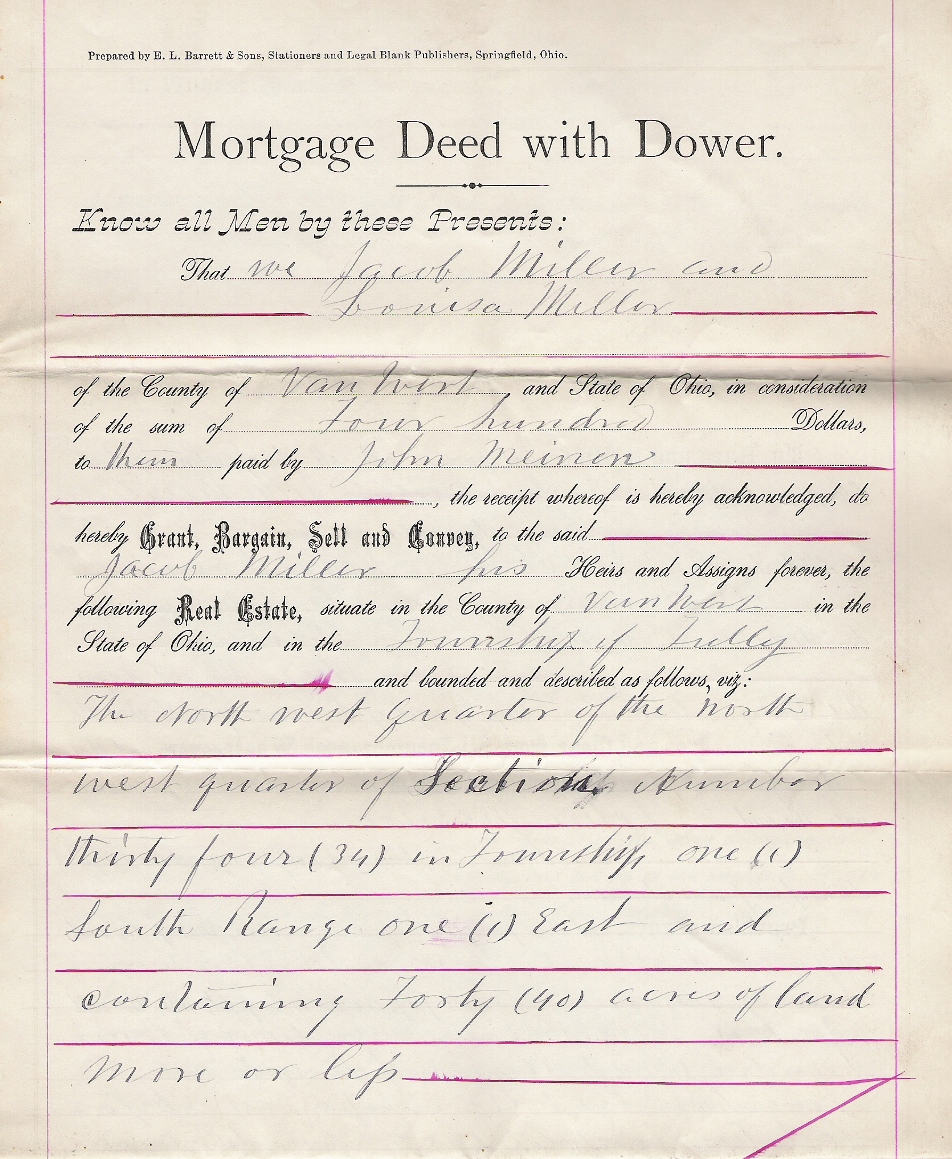 Prepared by E. L. Barrett & Sons, Stationers and Legal Blank Publishers, Springfield, Ohio.
Mortgage Deed with Dower.
Know all Men by these Presents:
That we Jacob Miller and
Louisa Miller
of the County of Van Wert and State of Ohio, in consideration
of the sum of Four hundred Dollars,
to them paid by John Meinen
, the receipt whereof is hereby acknowledged, do
hereby Grant, Bargain, Sell and Convey, to the said
Jacob Miller his Heirs and Assigns forever, the
following Real Estate, situate in the County of Van Wert in the
State of Ohio, and in the Township of Tully
and bounded and described as follows, viz:
The North west Quarter of the north
west quarter of Section Number
thirty four (34) in Township one (1)
South Range one (1) East and
containing Forty (40) acres of land
more or less